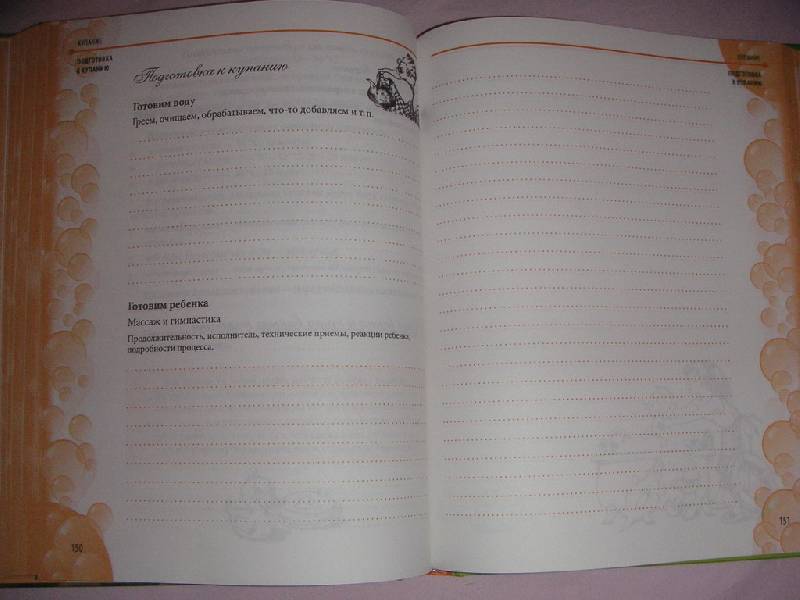 КУПАНИЕ
ПОДГОТОВКА
К КУПАНИЮ
Подготовка к купанию
Готовим воду
Греем, очищаем, обрабатываем, что-то добавляем и т. п.
Готовим ребенка
Массаж и гимнастика
Продолжительность, исполнитель, технические приемы, реакции ребенка,
подробности процесса.
150
КУПАНИЕ
ПОДГОТОВКА
К КУПАНИЮ
151